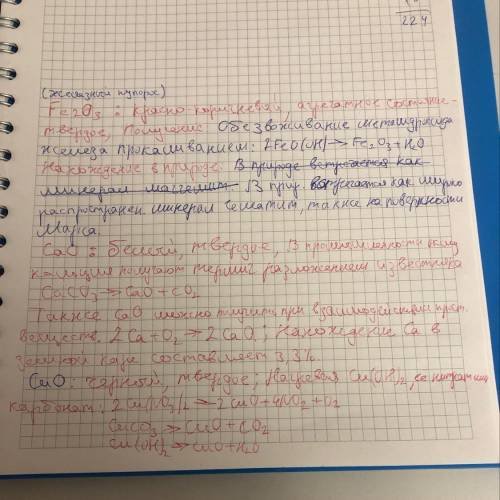 224
(железный купорос)
Fe2O3: красно-коричневый, агрегатное состояние-
твердое, Получение Обезвоживание метагидроксида
железа прокаливанием: 2FeO(OH) → Fe2O3 + H2O
Нахождение в природе: В природе встречается как
минерал маггемит. В прир. встречается как широко
распространен. минерал гематит, также на поверхности
Марса.
CaO: белый, твердое, В промышленности оксид
кальция получают термич. разложением известняка
CaCO3 → CaO + CO2
Также CaO можно получить при взаимодействии прост.
веществ. 2Ca + O2 → 2CaO; Нахождение Ca в
земной коре составляет 3,3%
CuO: черный, твердое; Нагревая Cu(OH)2, ее нитрат или
карбонат: 2Cu(NO3)2 → 2CuO + 4NO2 + O2
CuCO3 → CuO + CO2
Cu(OH)2 → CuO + H2O